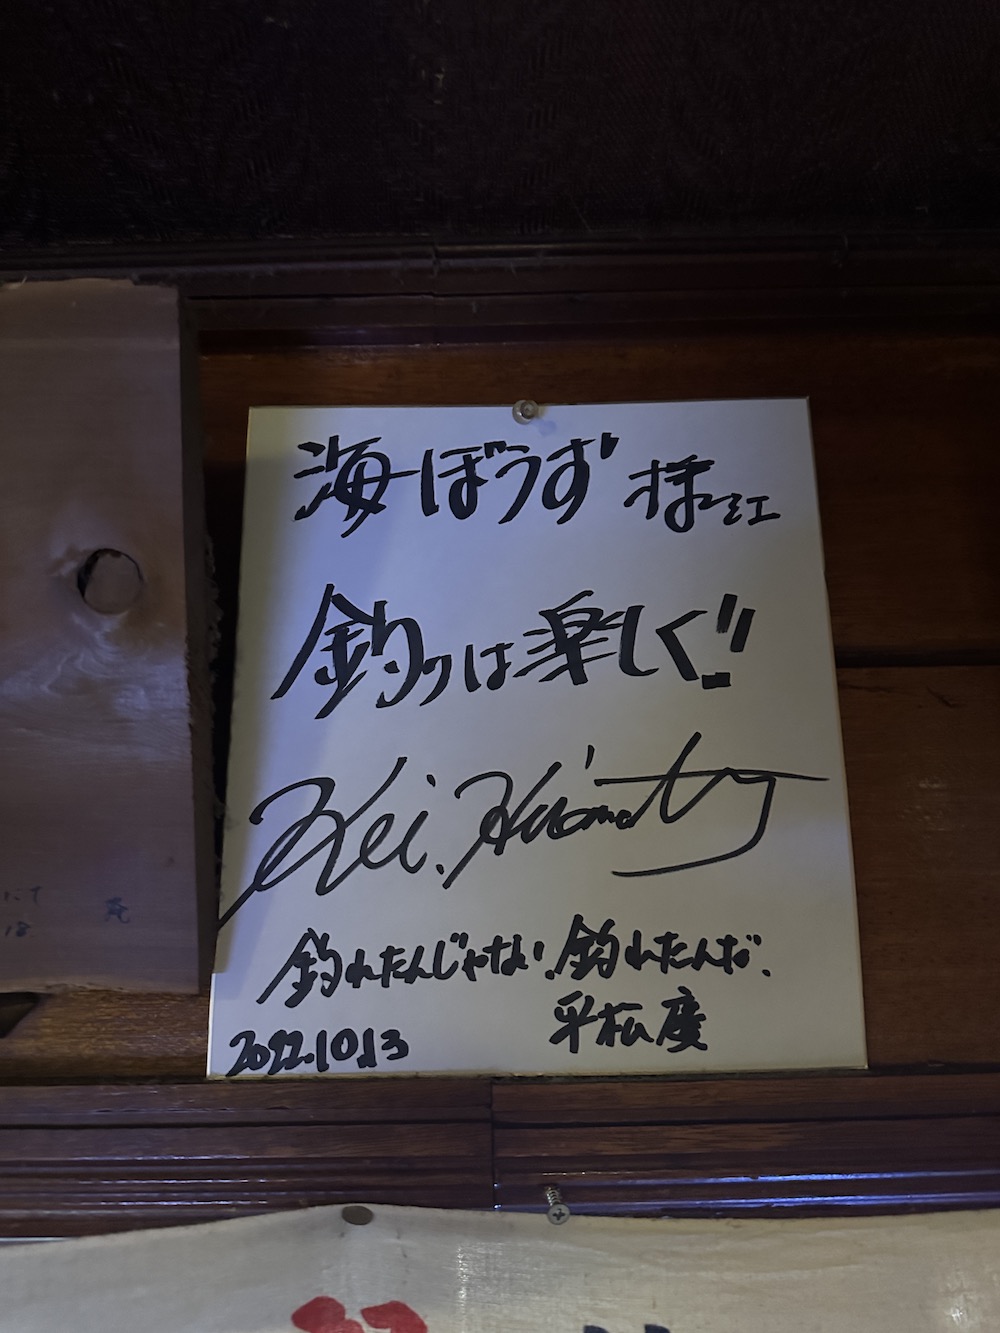 海ぼうず様江
釣りは楽しく!!
Kei. Hiramatsu
釣れたんじゃない、釣れたんだ、
平松慶
2022.10.13